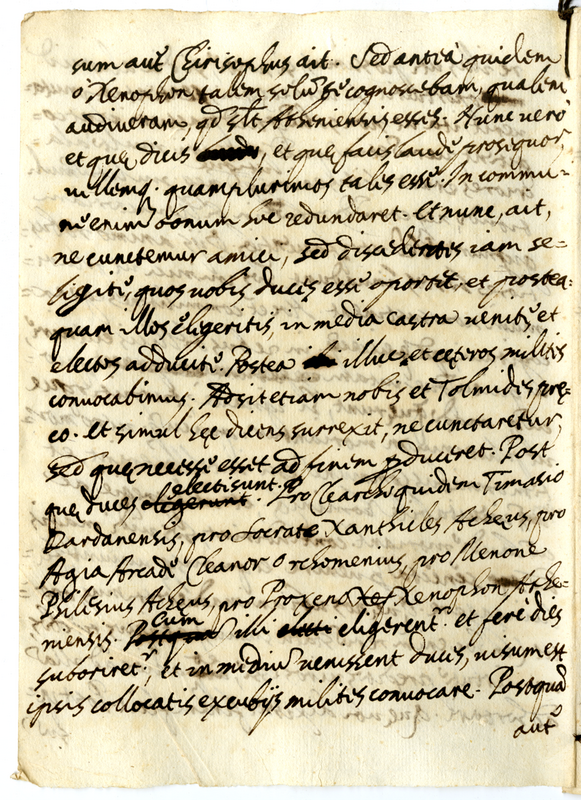 sum aut Chirisophus ait. Sed anteà quidem
ò Xenophon talem solũ te cognoscebam, qualem
audiveram, qd slt Atheniensis esses. Nunc verò
et quę dicis, et quę facis laude prosequor,
vellemq. quamplurimos tales esse. In commu-
ne enim bonum hoc redundaret. Et nunc, ait,
ne cunctemur amici, sed discedentes iam se-
ligite, quos vobis duces esse oportet, et postea-
quam illos eligeritis, in media castra venite et
electos adducite. Postea illuc et cęteros milites
convocabimus. Adsit etiam nobis et Tolmides prę-
co. Et simul hęc dicens surrexit, ne cunctaretur,
sed quę necesse esset ad finem pduceret. Post
quę duces eligerunt electi sunt. Pro Clearcho quidem Timasio
Dardanensis, pro Socrate Xanthicles Achęus, pro
Agia Arcade Cleanor Orchomenius, pro Menone
Philesius Achęus, pro Proxeno Xenophon Athe-
niensis. Postquã Cum illi eligerentr. et ferè dies
suboriretr, et in mediũ venissent duces, visum est
ipsis collocatis excubijs milites convocare. Postquã
aut